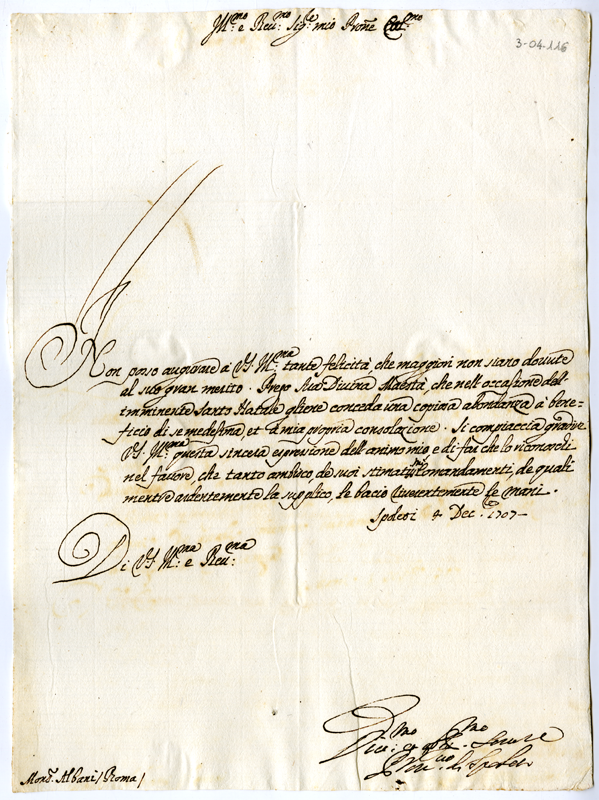 Ill.mo e Reu.mo Sig.re mio Prone Col.mo
3-04.116
Non posso augurare à V.S. Ill.ma tante felicità, che maggiori non siano dovute
al suo gran merito. Prego Sua Divina Maestà, che nell'occasione dell'
imminente Santo Natale gliene conceda una copiosa abondanza à bene=
ficio di se medesima, et à mia propria consolazione. Si compiaccia gradire
V.S. Ill.ma questa sincera espressione dell'animo mio, e di far che lo riconoschi
nel favore, che tanto ambisco de suoi stimatis.mi comandamenti, de quali
mentre ardentemente la supplico, le bacio riverentemente le mani.
Spoleti 4 Dec.re 1707
Di V.S. Ill.ma e Reu.ma
Mons. Albani / Roma /
Diu.mo
di Spoleti